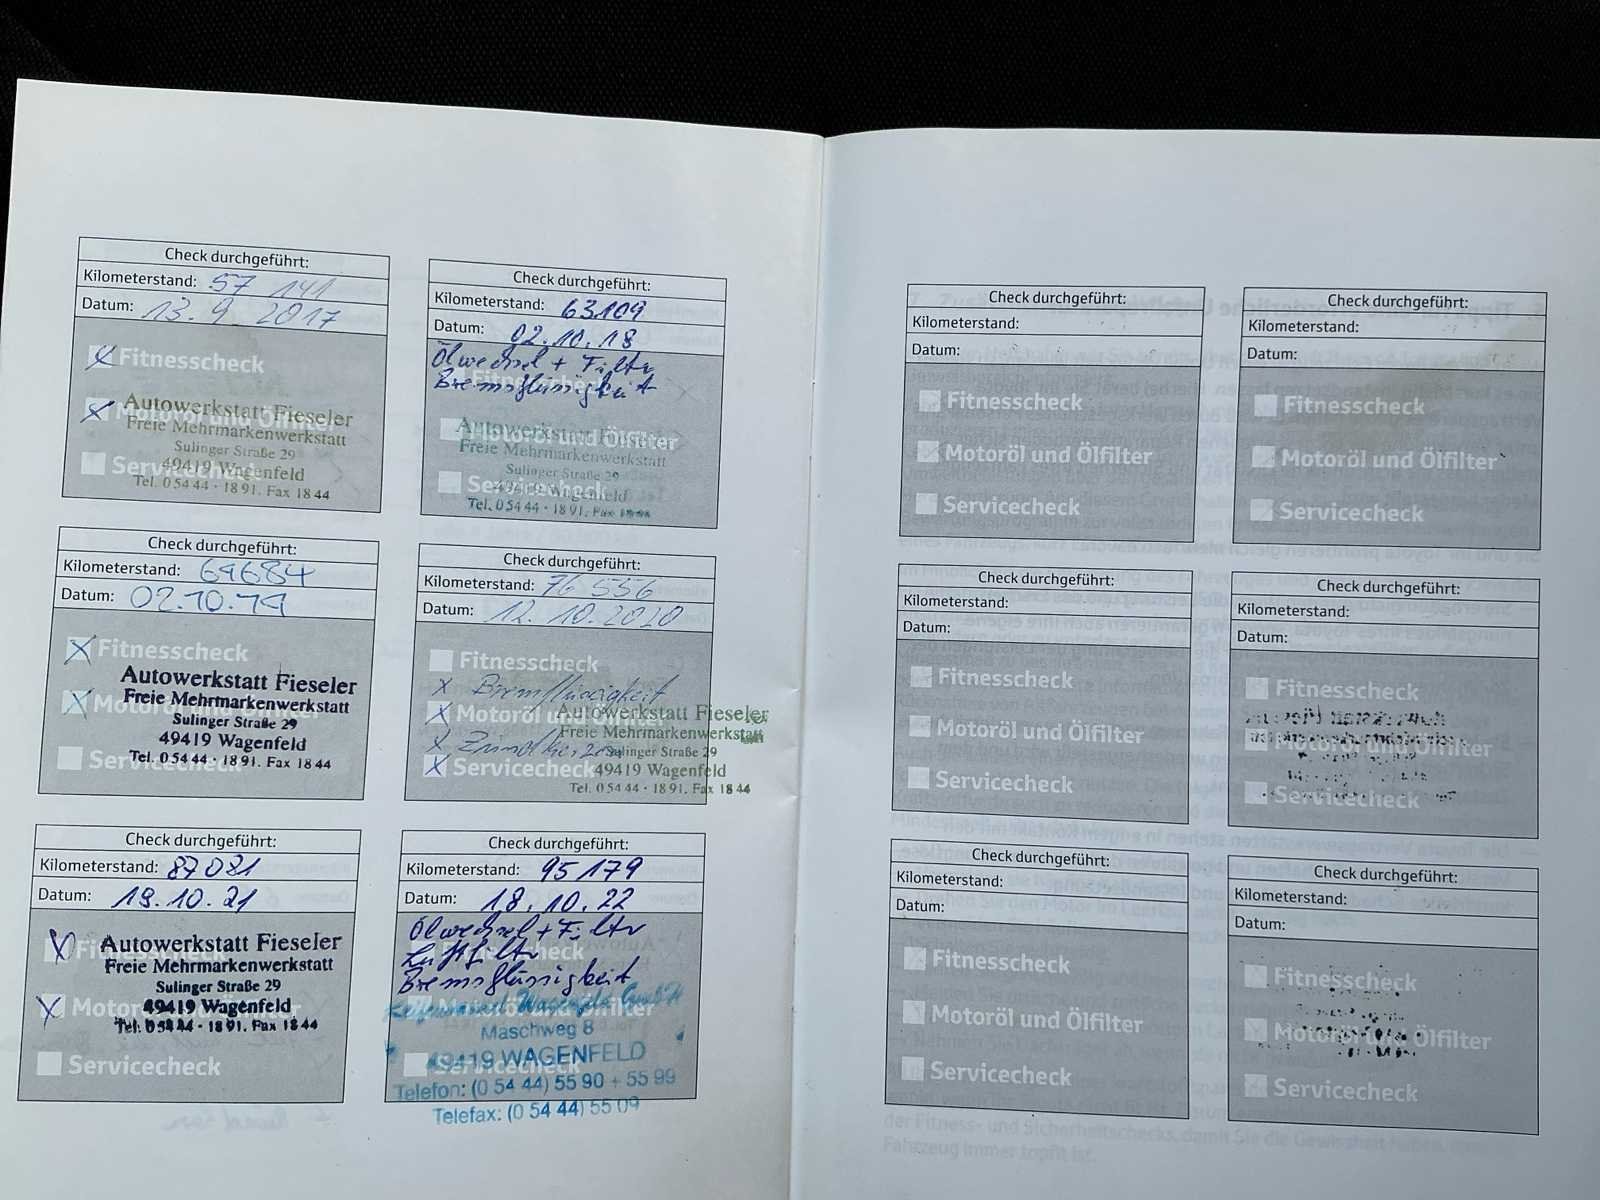 Check durchgeführt:
Kilometerstand: 57 141
Datum: 13. 9. 2017
Fitnesscheck
Motoröl und Ölfilter
Autowerkstatt Fieseler
Freie Mehrmarkenwerkstatt
Sulinger Straße 29
Servicecheck
49419 Wagenfeld
Tel. 0 54 44 · 18 91. Fax 18 44
Check durchgeführt:
Kilometerstand: 63109
Datum: 02.10.18
Ölwechsel + Filter
Fitnesscheck
Bremsflüssigkeit
Autowerkstatt Fieseler
Motoröl und Ölfilter
Freie Mehrmarkenwerkstatt
Sulinger Straße 29
Servicecheck
49419 Wagenfeld
Tel. 0 54 44 · 18 91. Fax 18 44
Check durchgeführt:
Kilometerstand: 69684
Datum: 02.10.19
Fitnesscheck
Autowerkstatt Fieseler
Motoröl und Ölfilter
Freie Mehrmarkenwerkstatt
Sulinger Straße 29
49419 Wagenfeld
Servicecheck
Tel. 0 54 44 · 18 91. Fax 18 44
Check durchgeführt:
Kilometerstand: 76 556
Datum: 12. 10. 2020
Fitnesscheck
x Bremsflüssigkeit
Motoröl und Ölfilter
Autowerkstatt Fieseler
Freie Mehrmarkenwerkstatt
x Zündkerzen
Sulinger Straße 29
Servicecheck
49419 Wagenfeld
Tel. 0 54 44 · 18 91. Fax 18 44
Check durchgeführt:
Kilometerstand: 87081
Datum: 19.10.21
Fitnesscheck
Autowerkstatt Fieseler
Freie Mehrmarkenwerkstatt
Sulinger Straße 29
Motoröl und Ölfilter
49419 Wagenfeld
Tel. 0 54 44 · 18 91. Fax 18 44
Servicecheck
Check durchgeführt:
Kilometerstand: 95179
Datum: 18.10.22
Ölwechsel + Filter
Luftfilter
Fitnesscheck
Bremsflüssigkeit
Motoröl und Ölfilter
Wagenfeld GmbH
Maschweg 8
49419 WAGENFELD
Servicecheck
Telefon: (0 54 44) 55 90 + 55 99
Telefax: (0 54 44) 55 09
Check durchgeführt:
Kilometerstand:
Datum:
Fitnesscheck
Motoröl und Ölfilter
Servicecheck
Check durchgeführt:
Kilometerstand:
Datum:
Fitnesscheck
Motoröl und Ölfilter
Servicecheck
Check durchgeführt:
Kilometerstand:
Datum:
Fitnesscheck
Motoröl und Ölfilter
Servicecheck
Check durchgeführt:
Kilometerstand:
Datum:
Fitnesscheck
Motoröl und Ölfilter
Servicecheck
Check durchgeführt:
Kilometerstand:
Datum:
Fitnesscheck
Motoröl und Ölfilter
Servicecheck
Check durchgeführt:
Kilometerstand:
Datum:
Fitnesscheck
Motoröl und Ölfilter
Servicecheck